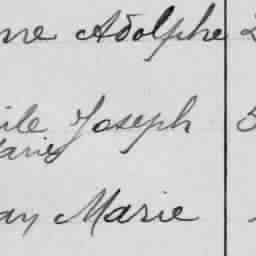 ne Adolphe 2
ile Joseph 5
aries
ay Marie